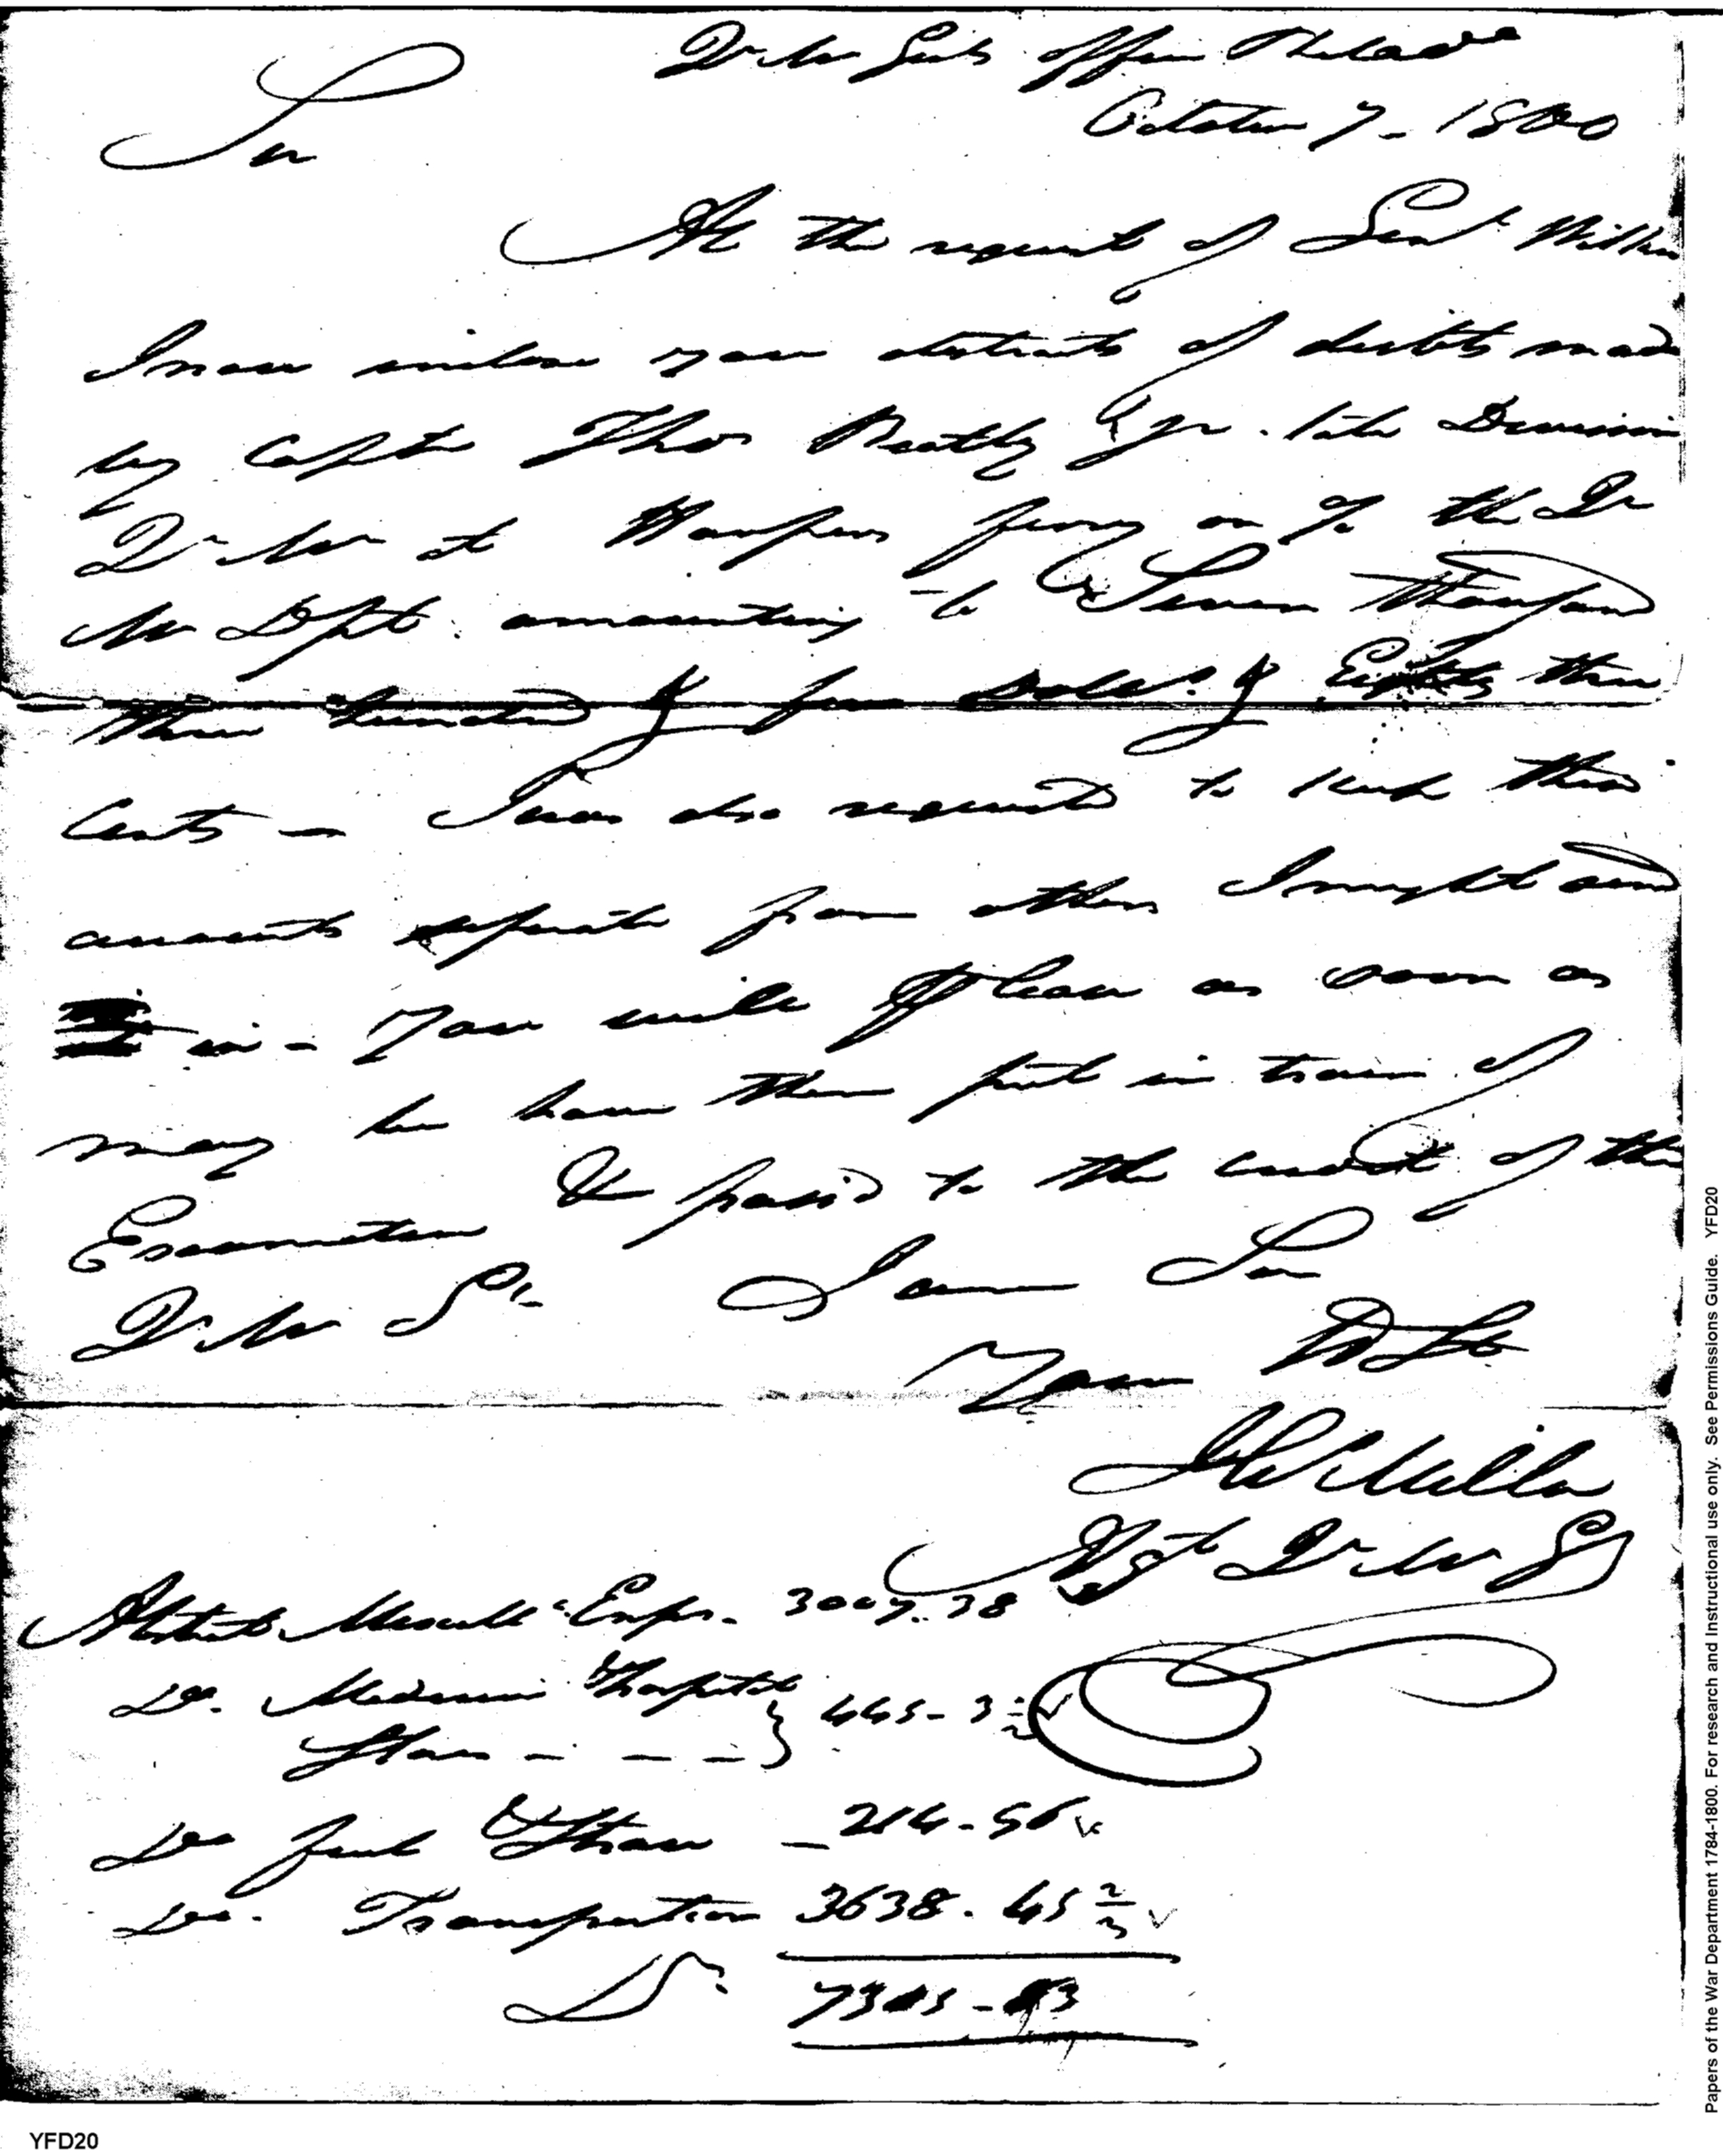 Qr Mr Genls Office Philada
October 7 - 1800
Sir
At the request of Genl Wilkin
I now enclose you abstracts of debts made
by Captn Thos Beatty Jr. late Division
Qr Mr at Harpers ferry on % the Qr
Mr Dpt. amounting to Seven Thousand
three hundred & five Dolls. & Eighty three
Cents — I was also requested to keep these
accounts seperate from others I might send
in - You will please as soon as
may be have them put in train of
Examination & pass'd to the credit of the
Qr Mr Gl. I am Sir
Your
Jn Miller
Asst Qr M Gl
Abstracts Miscells Exps. 3007.38
Do. Medicine & Hospital
Stores - - - } 445-3
Do fuel & Straw - 214-96
Do. Transportation 3638. 45 2/3
Drs. 7305-83
Papers of the War Department 1784-1800. For research and Instructional use only. See Permissions Guide. YFD20
YFD20